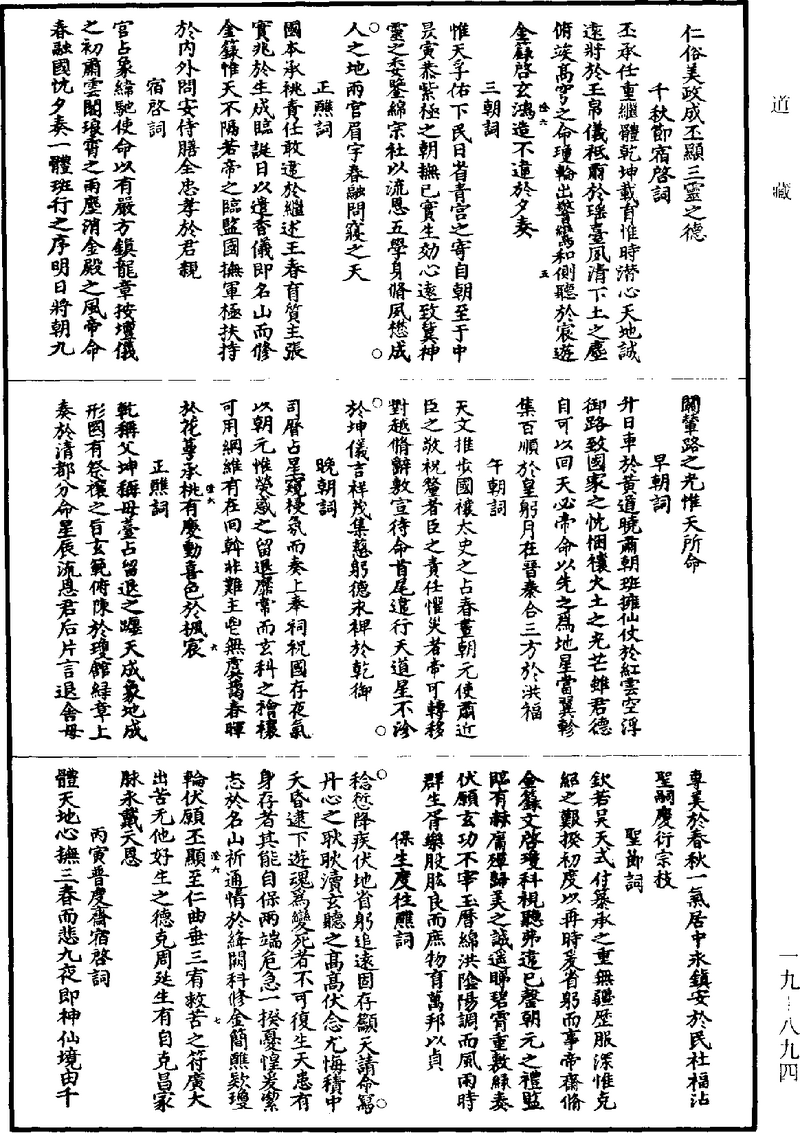 道藏
仁俗美政成丕顯三靈之德
千秋節宿啓詞
丕承任重繼體乾坤載育惟時潛心天地誠
遠將於玉帛儀祗肅於瑤臺風清下土之塵
俯竢高穹之命瓊輪出警鸞和側聽於宸遊
金籙啓玄鴻造不違於夕奏
三朝詞
惟天孚佑下民日省青宮之寄自朝至于中
昃寅恭紫極之朝撫已實生効心遠致冀神
靈之委鑒綿宗社以流恩五學身脩夙懋成
人之地兩宮眉宇春融問寢之天
正醮詞
國本承祧責任敢違於繼述王春育質主張
實兆於生成臨誕日以遣香儀即名山而修
金籙惟天不隔若帝之臨監國撫軍極扶持
於內外問安侍膳全忠孝於君親
宿啓詞
宮占象緯馳使命以有嚴方鎮龍章按壇儀
之初肅雲闕琅霄之雨塵消金殿之風帝命
春融國忱夕奏一體班行之序明日將朝九
關輦路之光惟天所命
早朝詞
升日車於黃道曉肅朝班擁仙仗於紅雲空浮
御路致國家之忱悃禳火土之光芒雖君德
自可以回天必帝命以先之爲地星當翼軫
集百順於皇躬月在晉秦合三方於洪福
午朝詞
天文推步國禳太史之占春晝朝元使肅近
臣之敬祝釐者臣之責任懼災者帝可轉移
對越脩辭數宣待命首尾違行天道星不沴
於坤儀吉祥茂集慈躬德永裨於乾御
晚朝詞
司曆占星窺祲氛而奏上奉祠祝國存夜氣
以朝元惟熒惑之留退靡常而玄科之禬禳
可用綱維有在回斡非難主鬯無虞藹春暉
於花萼承祧有慶動喜色於楓宸
正醮詞
乾稱父坤稱母蓋占留退之躔天成象地成
形國有祭禳之旨玄範俯陳於瓊館綠章上
奏於清都分命星辰流恩君后片言退舍母
專美於春秋一氣居中永鎮安於民社福沾
聖嗣慶衍宗枝
聖節詞
欽若昊天式付纂承之重無疆歷服深惟克
紹之艱揆初度以再時爰省躬而事帝齋脩
金籙文啓瓊科視聽弗違已罄朝元之禮監
臨有赫廣殫歸美之誠遥睇碧霄重敷綠奏
伏願玄功不宰玉曆綿洪陰陽調而風雨時
群生胥樂股肱良而庶物育萬邦以貞
保生度往醮詞
稔愆降疾伏地省躬追遠固存籲天請命寫
丹心之耿耿瀆玄聽之高高伏念尤悔積中
夭昏逮下遊魂爲變死者不可復生夭患有
身存者其能自保兩端危急一揆憂惶爰縶
志於名山祈通情於絳闕科修金簡醮欵瓊
輪伏願丕顯至仁曲垂三宥敕苦之符廣大
出苦无他好生之德克周延生有自克昌家
脉永戴天恩
丙寅普慶齋宿啓詞
體天地心撫三春而悲九夜即神仙境由千
澄六
五
澄六
六
澄六
七
一九-八九四